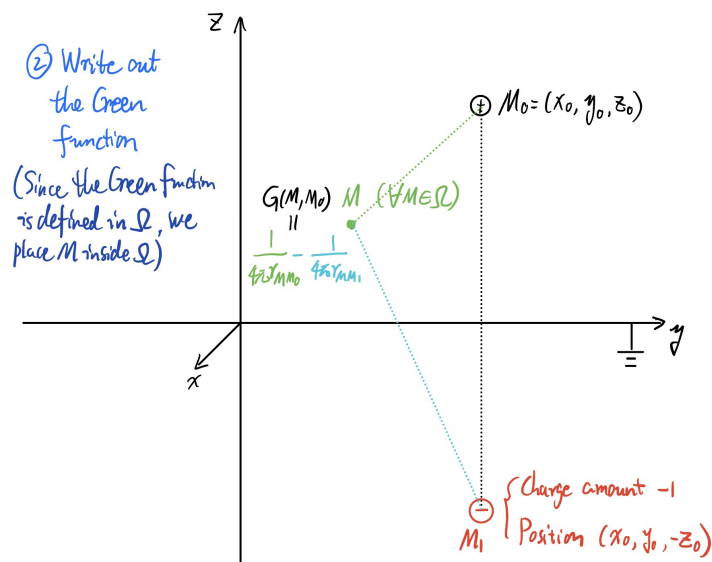 ② Write out
the Green
function
(Since the Green function
is defined in Ω, we
place M inside Ω)
z
M₀=(x₀, y₀, z₀)
G(M,M₀) M (∀M∈Ω)
=
1/(4πr_MM₀) - 1/(4πr_MM₁)
y
x
Charge amount -1
M₁
Position (x₀, y₀, -z₀)